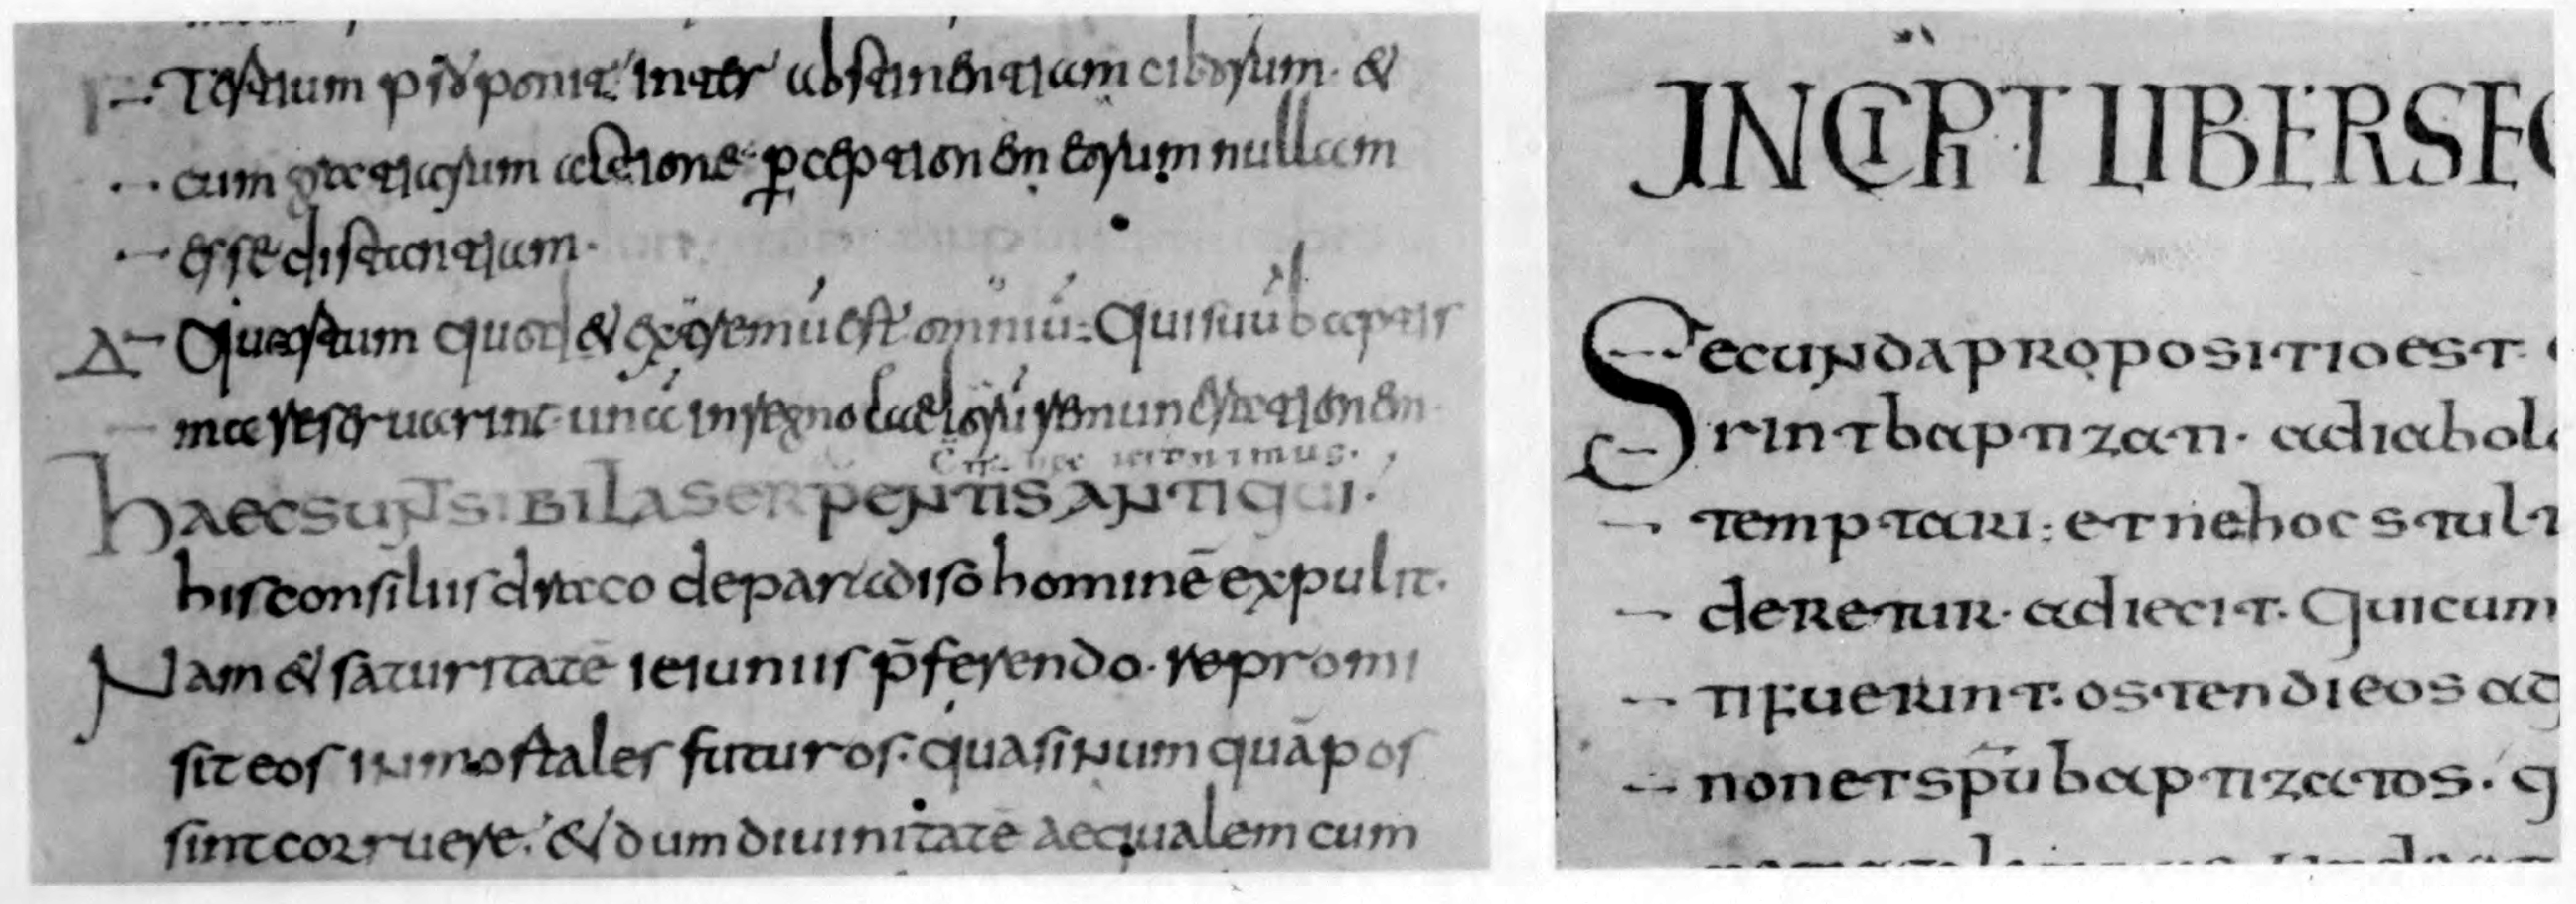 Γ Tertium proponit inter abstinentiam ciborum. &
cum gratiarum actione perceptionem eorum nullam
esse distantiam.
Δ Quartum quod & extremū est omniū: Qui suū baptis
ma reseruarint una in regno caelorū remunerationem
Cōt hęc ieronimus.
haec sunt sibila serpentis antiqui.
his consiliis draco de paradiso hominē expulit.
Nam & saturitatē ieiuniis p̄ferendo. repromi
sit eos inmortales futuros. quasi numquā pos
sint corruere. & dum diuinitatē aequalem cum
INCIPIT LIBER SEC
Secunda propositio est.
rint baptizati. a diabolo
temptari: et ne hoc stult
deretur. adiecit. Quicum
ti fuerint. ostendi eos aq
non et sp̄u baptizatos. q